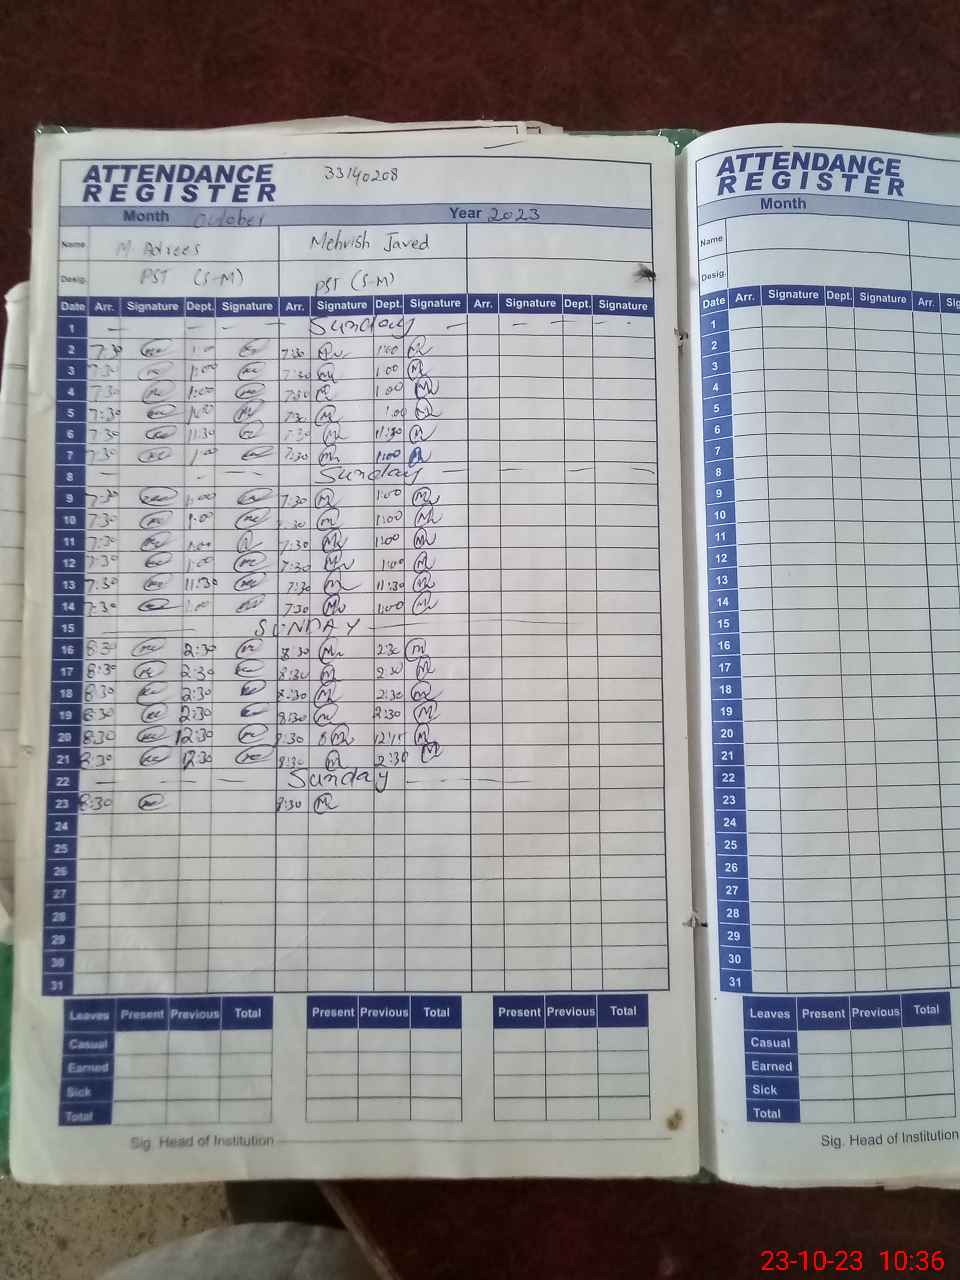 ATTENDANCE REGISTER 33140208
Month October Year 2023
Name M. Adrees Mehvish Javed
Desig. PST (S-M) PST (S-M)
Date Arr. Signature Dept. Signature Arr. Signature Dept. Signature Arr. Signature Dept. Signature
1 Sunday
2 7:30 1:00 7:30 1:00
3 7:30 1:00 7:30 1:00
4 7:30 1:00 7:30 1:00
5 7:30 1:00 7:30 1:00
6 7:30 11:30 7:30 11:30
7 7:30 1:00 7:30 1:00
8 Sunday
9 7:30 1:00 7:30 1:00
10 7:30 1:00 7:30 1:00
11 7:30 1:00 7:30 1:00
12 7:30 1:00 7:30 1:00
13 7:30 11:30 7:30 11:30
14 7:30 1:00 7:30 1:00
15 SUNDAY
16 8:30 2:30 8:30 2:30
17 8:30 2:30 8:30 2:30
18 8:30 2:30 8:30 2:30
19 8:30 2:30 8:30 2:30
20 8:30 12:30 8:30 12:15
21 8:30 8:30 2:30
22 Sunday
23 8:30 8:30
24
25
26
27
28
29
30
31
Leaves Present Previous Total Present Previous Total Present Previous Total
Casual
Earned
Sick
Total
Sig. Head of Institution
ATTENDANCE REGISTER
Month
Name
Desig.
Date Arr. Signature Dept. Signature Arr.
1
2
3
4
5
6
7
8
9
10
11
12
13
14
15
16
17
18
19
20
21
22
23
24
25
26
27
28
29
30
31
Leaves Present Previous Total
Casual
Earned
Sick
Total
Sig. Head of Institution
23-10-23 10:36